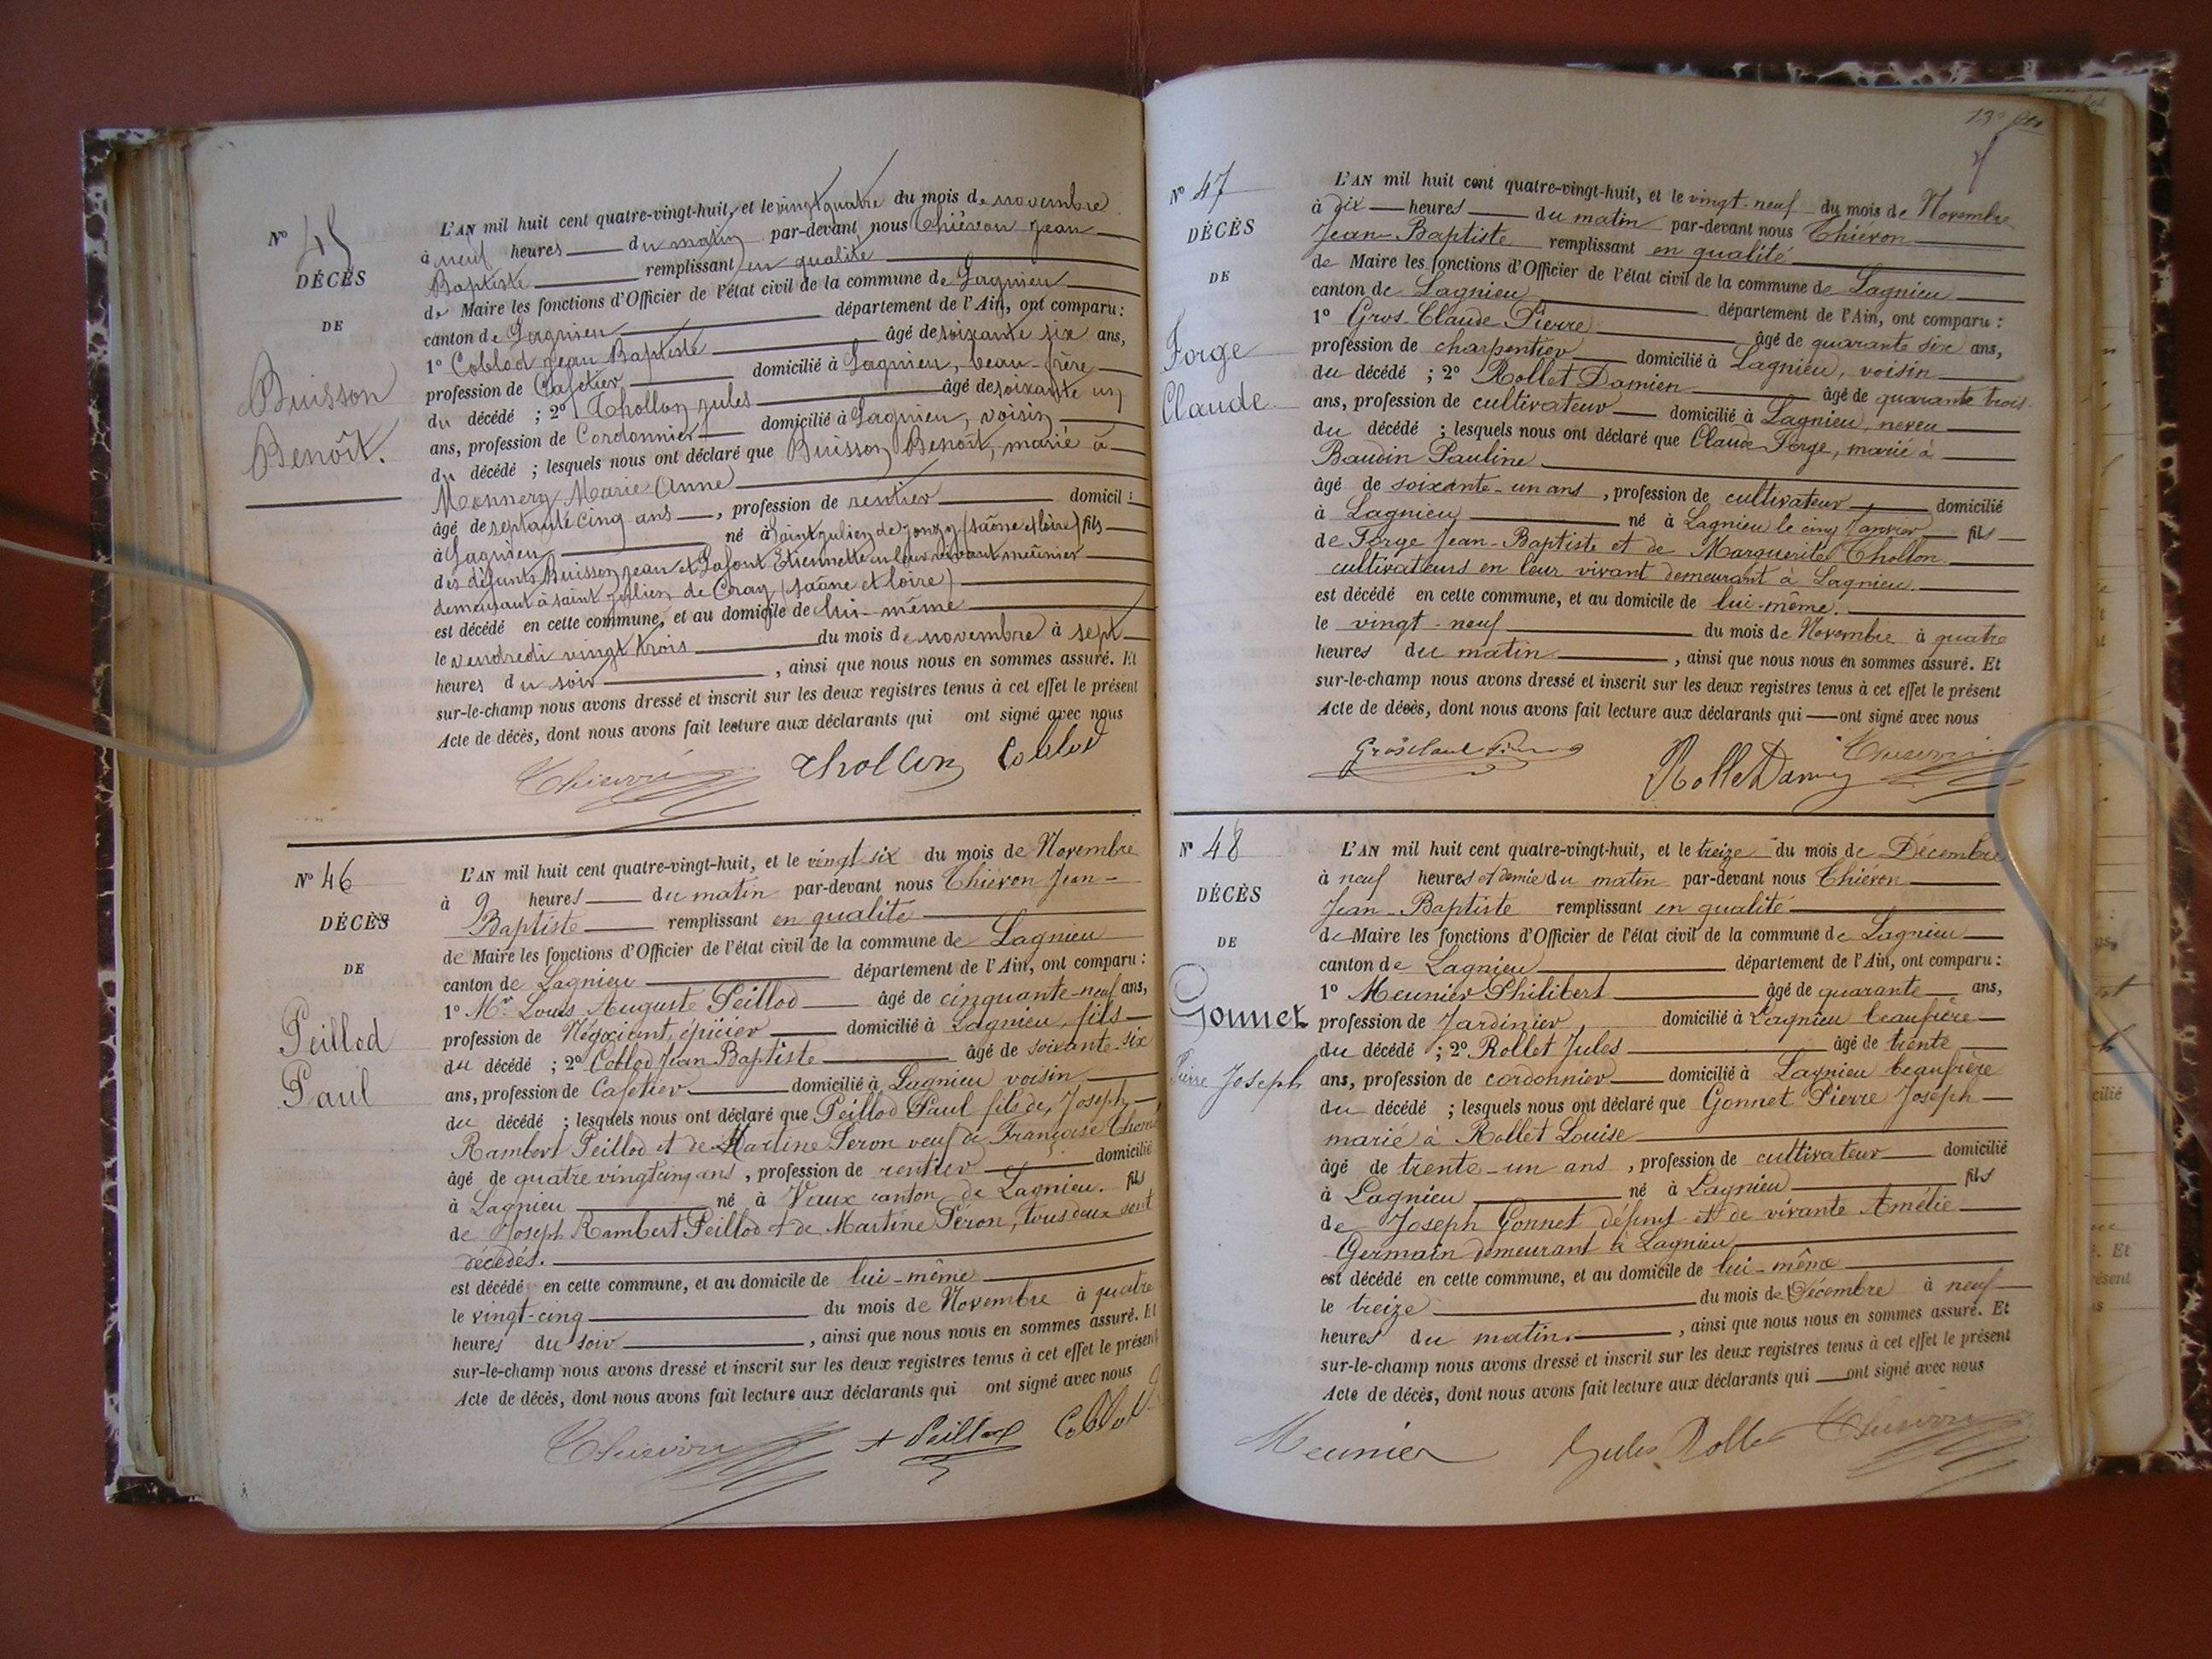 N° 45
DÉCÈS
DE
Buisson
Benoît.
L'AN mil huit cent quatre-vingt-huit, et le vingt quatre du mois de novembre
à neuf heures du matin par-devant nous Thiévon Jean
Baptiste remplissant en qualité
de Maire les fonctions d'Officier de l'état civil de la commune de Lagnieu
canton de Lagnieu département de l'Ain, ont comparu :
1° Coblod Jean Baptiste âgé de soixante six ans,
profession de Cafetier domicilié à Lagnieu, beau-frère
du décédé ; 2° Thollon Jules âgé de soixante un
ans, profession de Cordonnier domicilié à Lagnieu, voisin
du décédé ; lesquels nous ont déclaré que Buisson Benoît, marié à
Monnery Marie Anne
âgé de septante cinq ans, profession de rentier domicil :
à Lagnieu né à Saint Julien de Jonzy (Saône et Loire) fils
des défunts Buisson Jean et Lafont Etiennette en leur vivant meûnier
demeurant à saint Julien de Cray (saône et loire)
est décédé en cette commune, et au domicile de lui-même
le vendredi vingt trois du mois de novembre à sept
heures du soir, ainsi que nous nous en sommes assuré. Et
sur-le-champ nous avons dressé et inscrit sur les deux registres tenus à cet effet le présent
Acte de décès, dont nous avons fait lecture aux déclarants qui ont signé avec nous
Thievon Thollon Coblod
N° 46
DÉCÈS
DE
Peillod
Paul
L'AN mil huit cent quatre-vingt-huit, et le vingt-six du mois de Novembre
à 9 heures du matin par-devant nous Thiévon Jean-
Baptiste remplissant en qualité
de Maire les fonctions d'Officier de l'état civil de la commune de Lagnieu
canton de Lagnieu département de l'Ain, ont comparu :
1° Mr Louis Auguste Peillod âgé de cinquante-neuf ans,
profession de Négociant épicier domicilié à Lagnieu, fils
du décédé ; 2° Coblod Jean Baptiste âgé de soixante-six
ans, profession de Cafetier domicilié à Lagnieu voisin
du décédé ; lesquels nous ont déclaré que Peillod Paul fils de, Joseph
Rambert Peillod et de Martine Peron veuf de Françoise
âgé de quatre vingt cinq ans, profession de rentier domicilié
à Lagnieu né à Vaux canton de Lagnieu. fils
de Joseph Rambert Peillod & de Martine Péron, tous deux sont
décédés.
est décédé en cette commune, et au domicile de lui-même
le vingt-cinq du mois de Novembre à quatre
heures du soir, ainsi que nous nous en sommes assuré. Et
sur-le-champ nous avons dressé et inscrit sur les deux registres tenus à cet effet le présent
Acte de décès, dont nous avons fait lecture aux déclarants qui ont signé avec nous
Thievon Peillod Coblod
N° 47
DÉCÈS
DE
Forge
Claude
L'AN mil huit cent quatre-vingt-huit, et le vingt-neuf du mois de Novembre
à dix heures du matin par-devant nous Thiévon
Jean-Baptiste remplissant en qualité
de Maire les fonctions d'Officier de l'état civil de la commune de Lagnieu
canton de Lagnieu département de l'Ain, ont comparu :
1° Gros-Claude Pierre âgé de quarante six ans,
profession de charpentier domicilié à Lagnieu, voisin
du décédé ; 2° Rollet Damien âgé de quarante trois
ans, profession de cultivateur domicilié à Lagnieu, neveu
du décédé ; lesquels nous ont déclaré que Claude Forge, marié à
Baudin Pauline
âgé de soixante-un ans, profession de cultivateur domicilié
à Lagnieu né à Lagnieu le cinq Janvier fils
de Forge Jean-Baptiste et de Marguerite Thollon
cultivateurs en leur vivant demeurant à Lagnieu.
est décédé en cette commune, et au domicile de lui-même.
le vingt-neuf du mois de Novembre à quatre
heures du matin, ainsi que nous nous en sommes assuré. Et
sur-le-champ nous avons dressé et inscrit sur les deux registres tenus à cet effet le présent
Acte de décès, dont nous avons fait lecture aux déclarants qui ont signé avec nous
Thievon
N° 48
DÉCÈS
DE
Gonnet
Pierre Joseph
L'AN mil huit cent quatre-vingt-huit, et le treize du mois de Décembre
à neuf heures et demie du matin par-devant nous Thiévon
Jean-Baptiste remplissant en qualité
de Maire les fonctions d'Officier de l'état civil de la commune de Lagnieu
canton de Lagnieu département de l'Ain, ont comparu :
1° Meunier Philibert âgé de quarante ans,
profession de Jardinier domicilié à Lagnieu beaufrère
du décédé ; 2° Rollet Jules âgé de trente
ans, profession de cordonnier domicilié à Lagnieu beaufrère
du décédé ; lesquels nous ont déclaré que Gonnet Pierre Joseph
marié à Rollet Louise
âgé de trente-un ans, profession de cultivateur domicilié
à Lagnieu né à Lagnieu fils
de Joseph Gonnet défunt et de vivante Amélie
Germain demeurant à Lagnieu
est décédé en cette commune, et au domicile de lui-même
le treize du mois de Décembre à neuf
heures du matin, ainsi que nous nous en sommes assuré. Et
sur-le-champ nous avons dressé et inscrit sur les deux registres tenus à cet effet le présent
Acte de décès, dont nous avons fait lecture aux déclarants qui ont signé avec nous
Meunier Jules Rollet Thievon